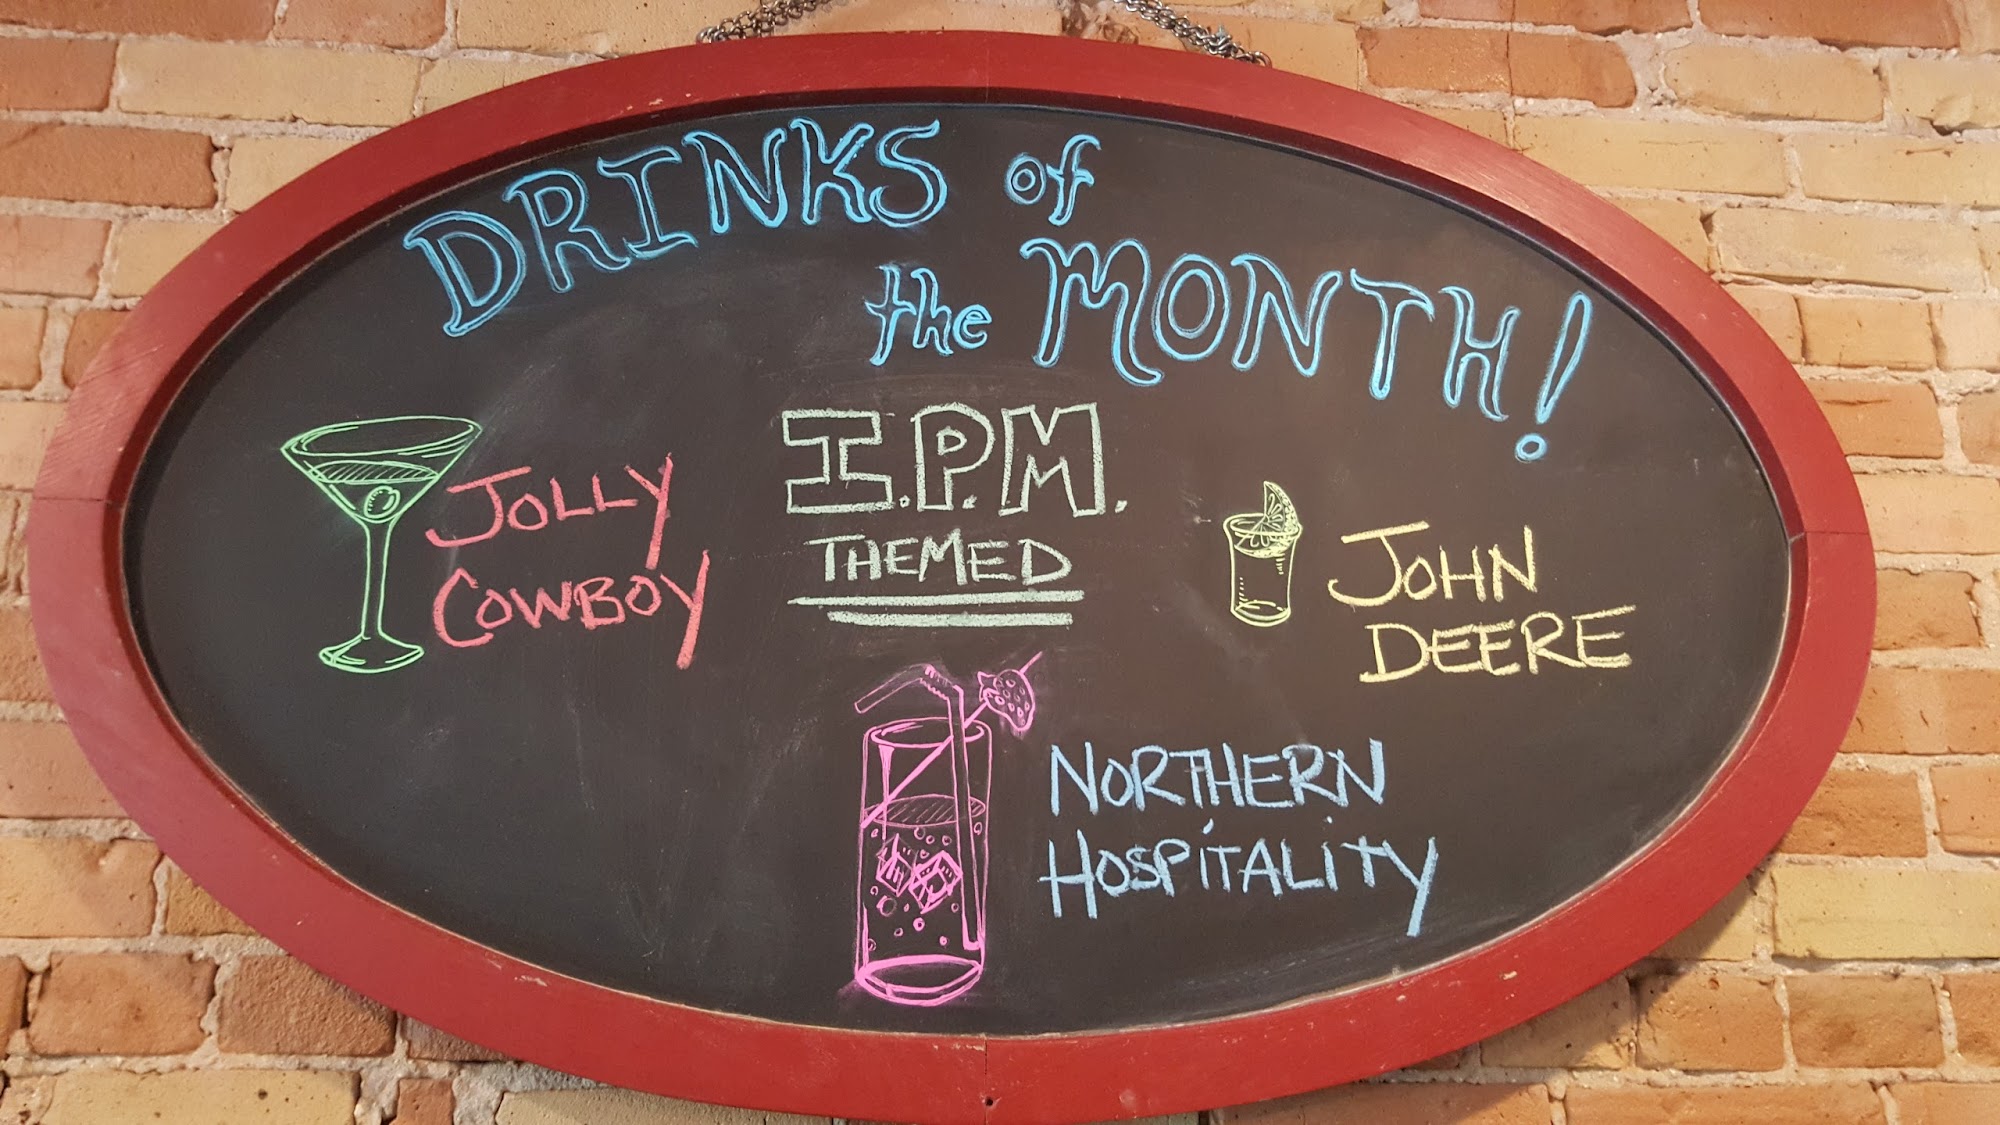 DRINKS of
the MONTH!
I.P.M.
THEMED
JOLLY
COWBOY
JOHN
DEERE
NORTHERN
HOSPITALITY